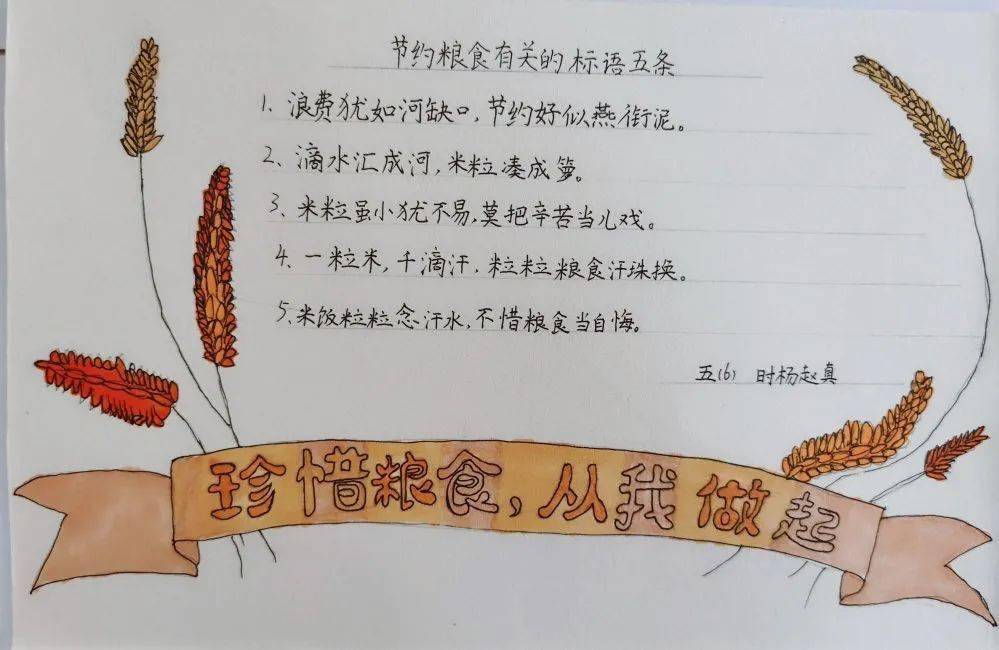 节约粮食有关的标语五条
1、浪费犹如河缺口,节约好似燕衔泥。
2、滴水汇成河,米粒凑成箩。
3、米粒虽小犹不易,莫把辛苦当儿戏。
4、一粒米,千滴汗,粒粒粮食汗珠换。
5、米饭粒粒念汗水,不惜粮食当自悔。
五(6) 时杨赵真
珍惜粮食,从我做起